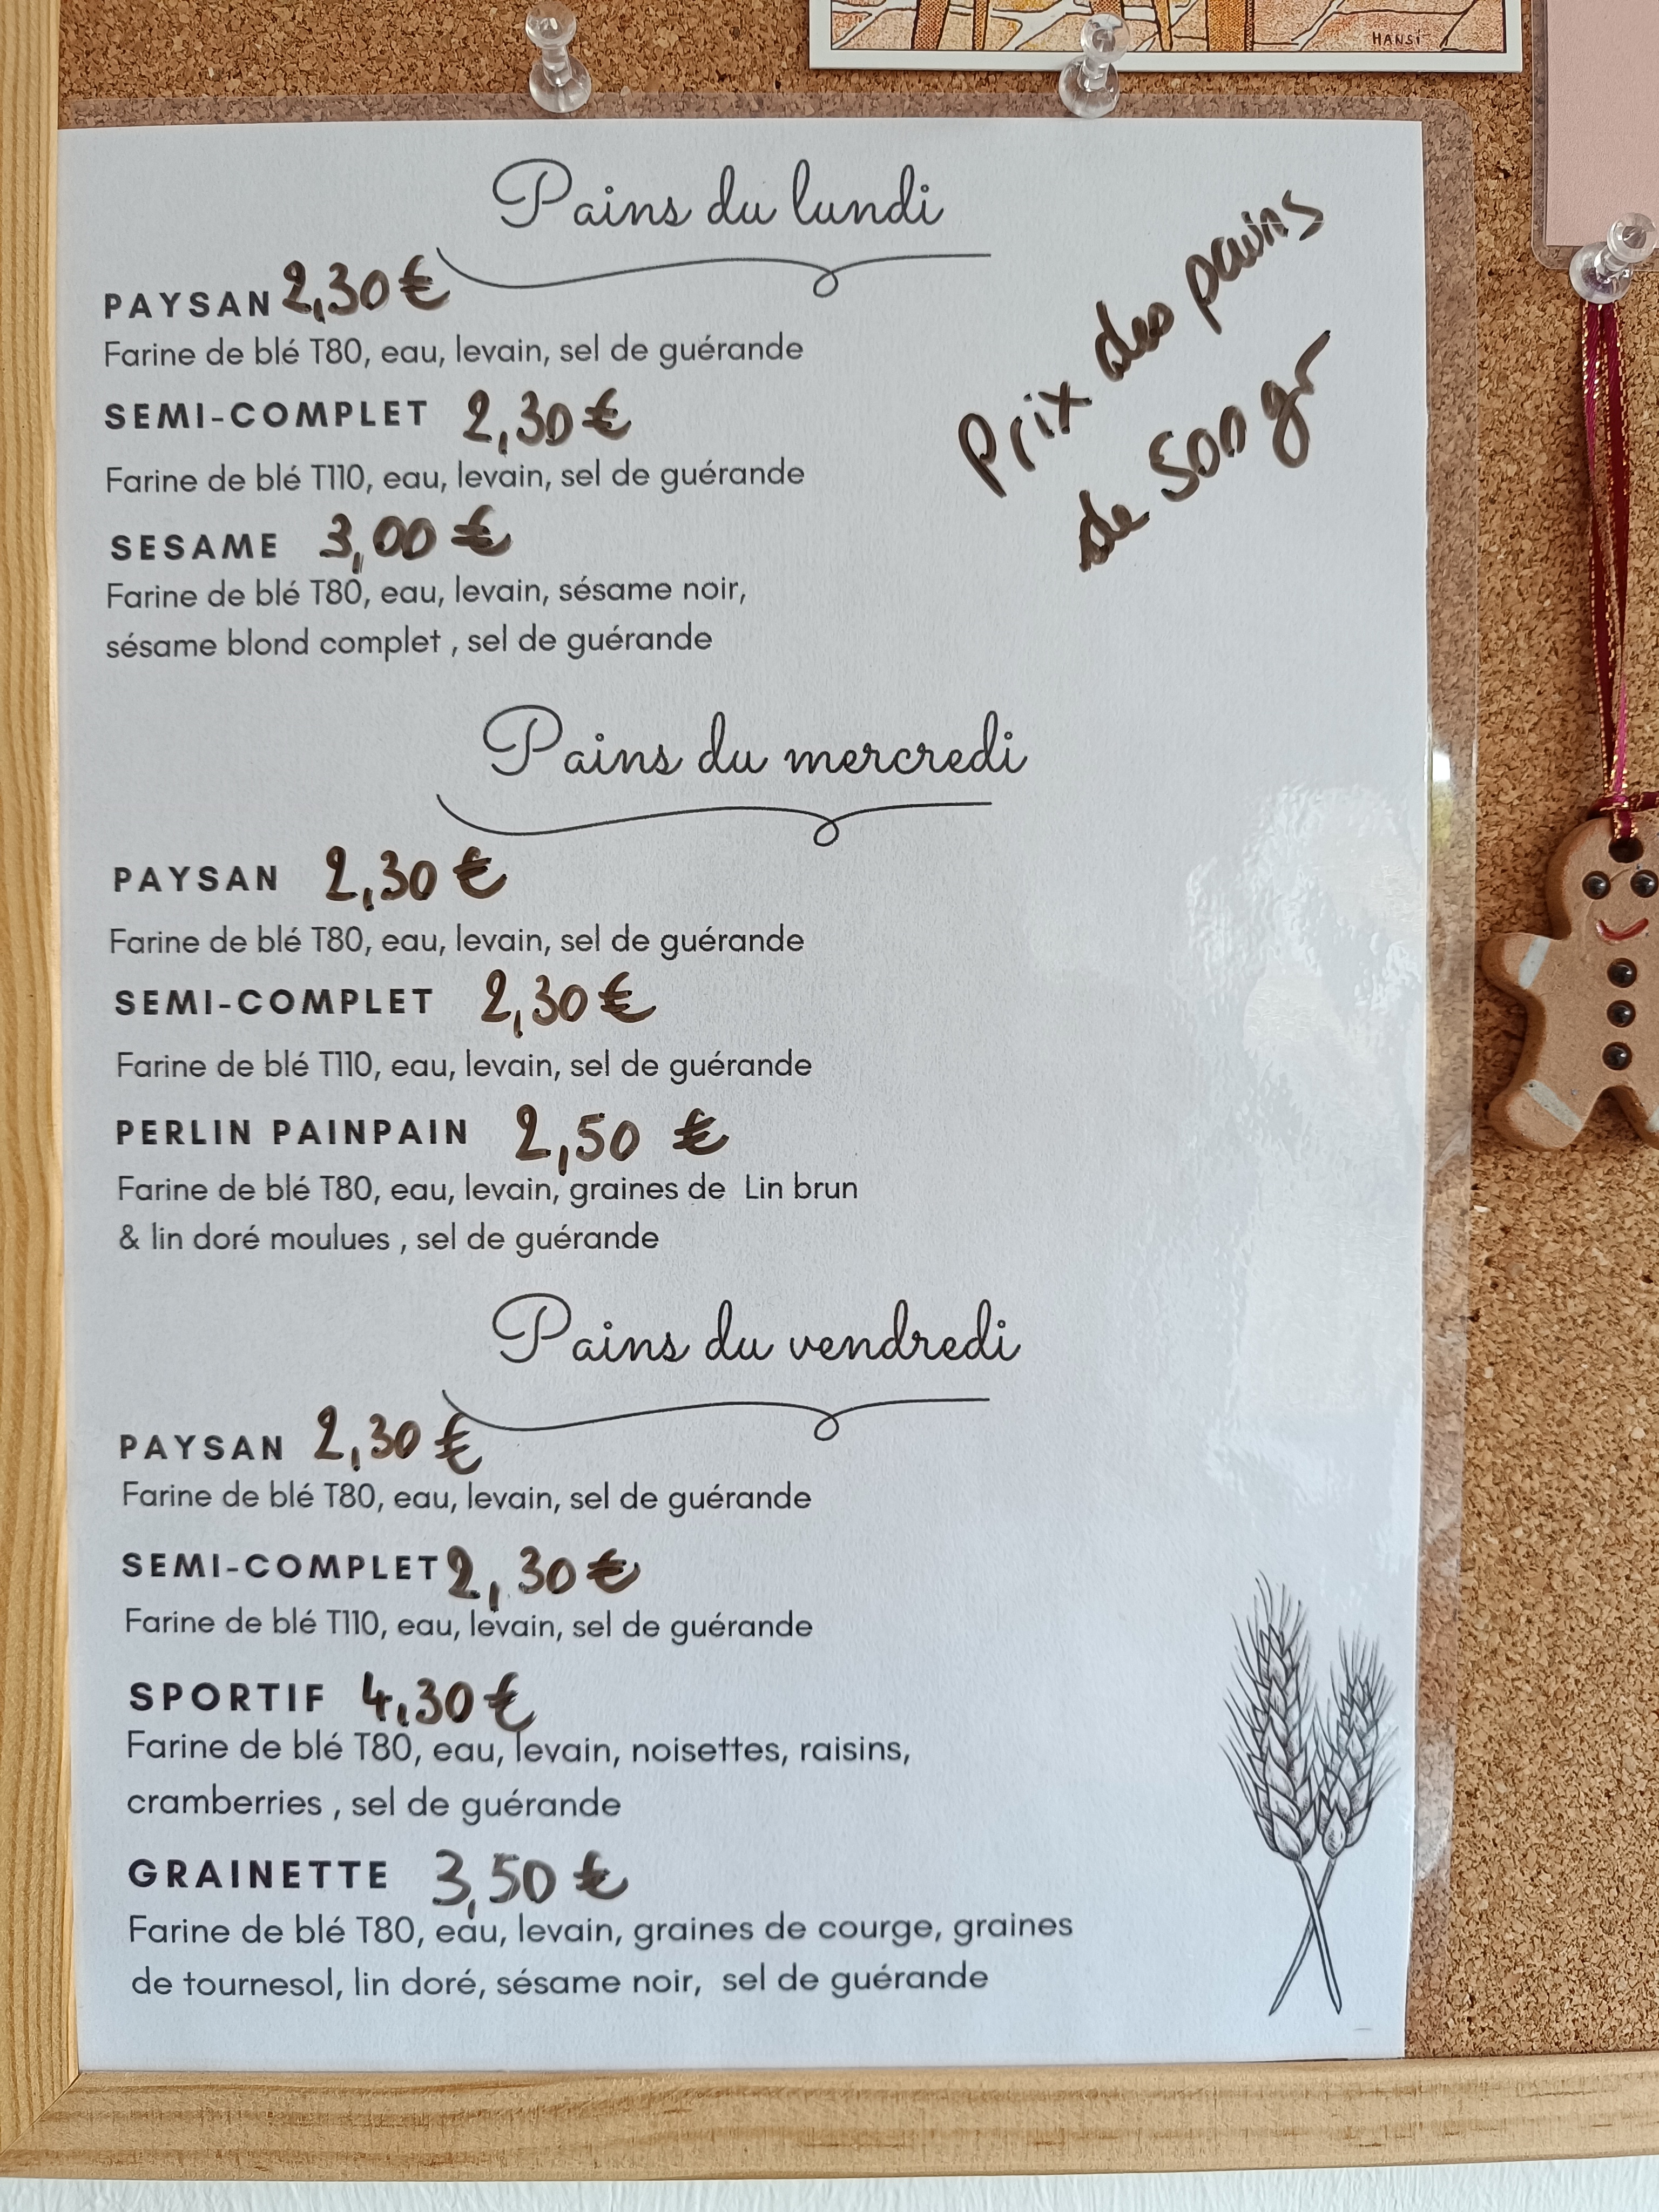 HANSi
Pains du lundi
PAYSAN 2,30 €
Farine de blé T80, eau, levain, sel de guérande
SEMI-COMPLET 2,30 €
Farine de blé T110, eau, levain, sel de guérande
SESAME 3,00 €
Farine de blé T80, eau, levain, sésame noir,
sésame blond complet , sel de guérande
Prix des pains
de 500 gr
Pains du mercredi
PAYSAN 2,30 €
Farine de blé T80, eau, levain, sel de guérande
SEMI-COMPLET 2,30 €
Farine de blé T110, eau, levain, sel de guérande
PERLIN PAINPAIN 2,50 €
Farine de blé T80, eau, levain, graines de Lin brun
& lin doré moulues , sel de guérande
Pains du vendredi
PAYSAN 2,30 €
Farine de blé T80, eau, levain, sel de guérande
SEMI-COMPLET 2,30 €
Farine de blé T110, eau, levain, sel de guérande
SPORTIF 4,30 €
Farine de blé T80, eau, levain, noisettes, raisins,
cramberries , sel de guérande
GRAINETTE 3,50 €
Farine de blé T80, eau, levain, graines de courge, graines
de tournesol, lin doré, sésame noir, sel de guérande